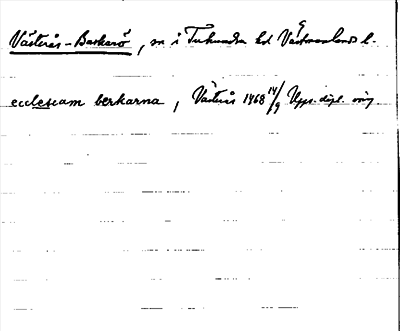 Västerås-Barkarö, sn i Tuhundra hd Västmanlands l.
ecclesiam berkarna, Västerås 1468 14/9 Upps. dipl. orig.